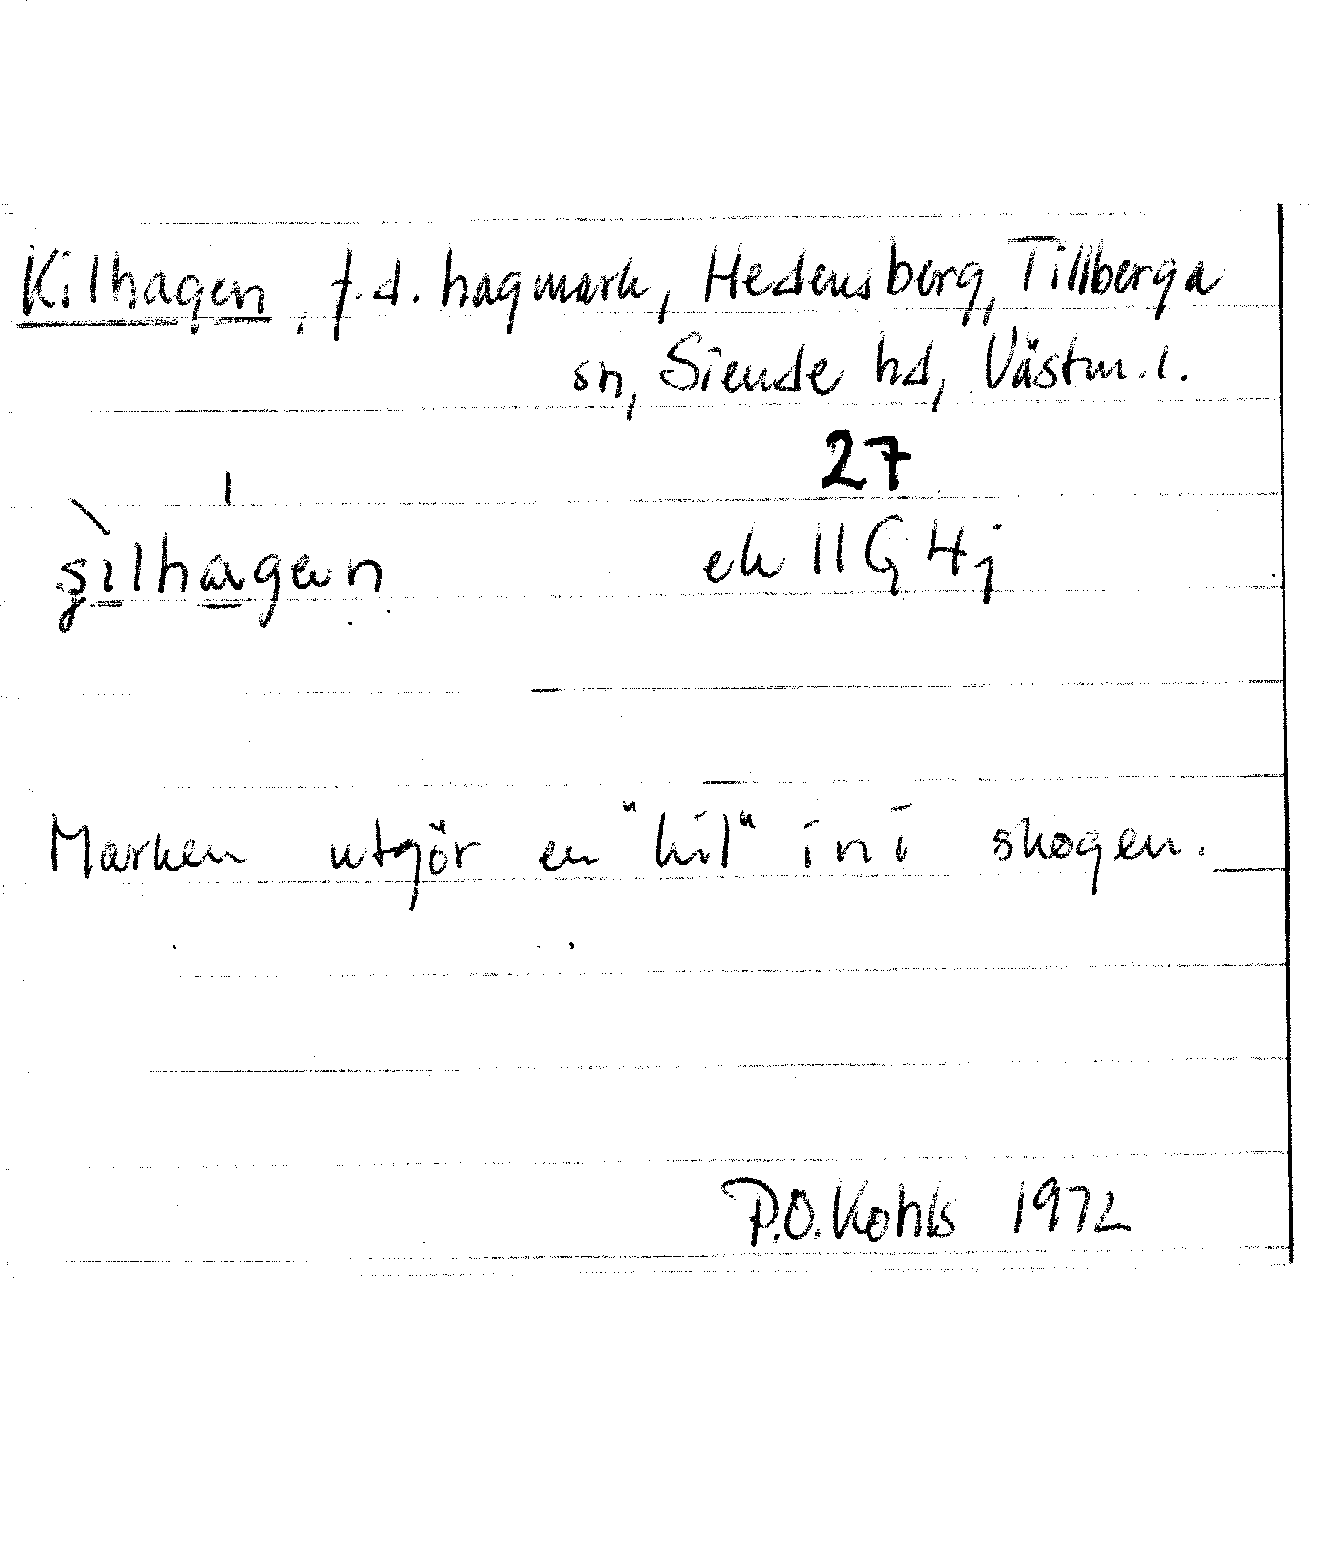 Kilhagen, f.d. hagmark, Hedensberg, Tillberga
sn, Siende hd, Västm.l.
27
ek 11G 4j
Marken utgör en "kil" in i skogen.
P.O. Kohls 1972